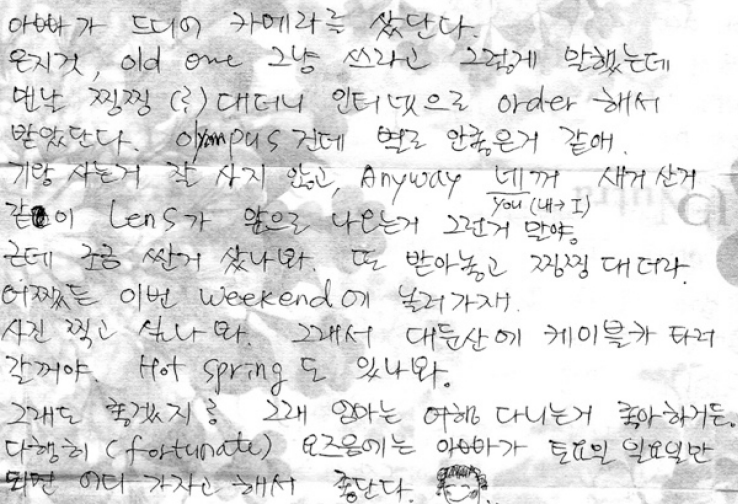 아빠가 드디어 카메라를 샀단다.
은지것, old one 그냥 쓰라고 그렇게 말했는데
맨날 찡찡 (?) 대더니 인터넷으로 order 해서
받았단다. olympus 건데 별로 안좋은거 같애.
기왕 사는거 잘 사지 않고, Anyway 네꺼 새거 산거
you (내→I)
같이 Lens가 앞으로 나오는거 그런거 말야.
근데 조금 싼거 샀나봐. 또 받아놓고 찡찡 대더라.
어쨌든 이번 weekend에 놀러가재.
사진 찍고 싶나봐. 그래서 대둔산에 케이블카 타러
갈꺼야. Hot spring도 있나봐.
그래도 좋겠지? 그래 엄마는 여행 다니는거 좋아하거든.
다행히 (fortunate) 요즈음에는 아빠가 토요일 일요일만
되면 어디 가자고 해서 좋단다.